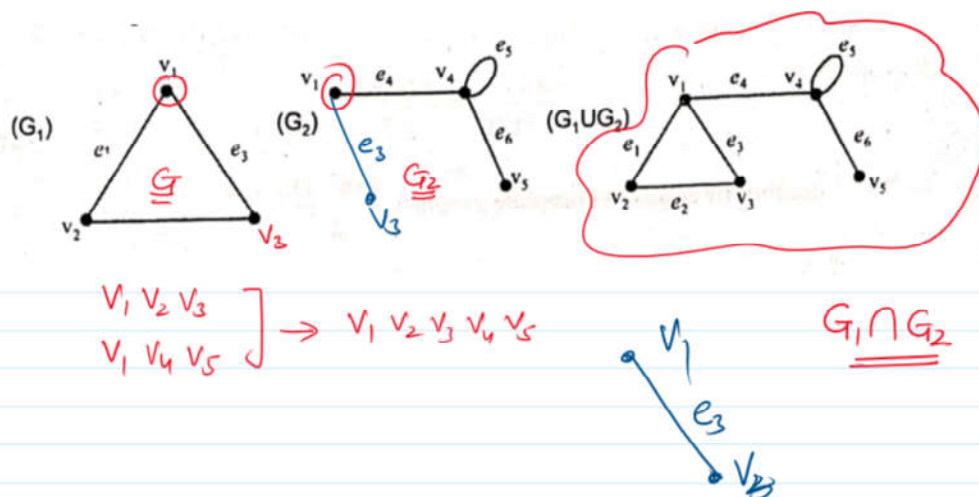 (G₁) v₁ e₁ e₃ G v₂ V₃
(G₂) v₁ e₄ v₄ e₅ e₃ G₂ e₆ v₅ V₃
(G₁UG₂) v₁ e₄ v₄ e₅ e₁ e₃ e₆ v₂ e₂ v₃ v₅
V₁ V₂ V₃
V₁ V₄ V₅
→ V₁ V₂ V₃ V₄ V₅
G₁ ∩ G₂
V₁
e₃